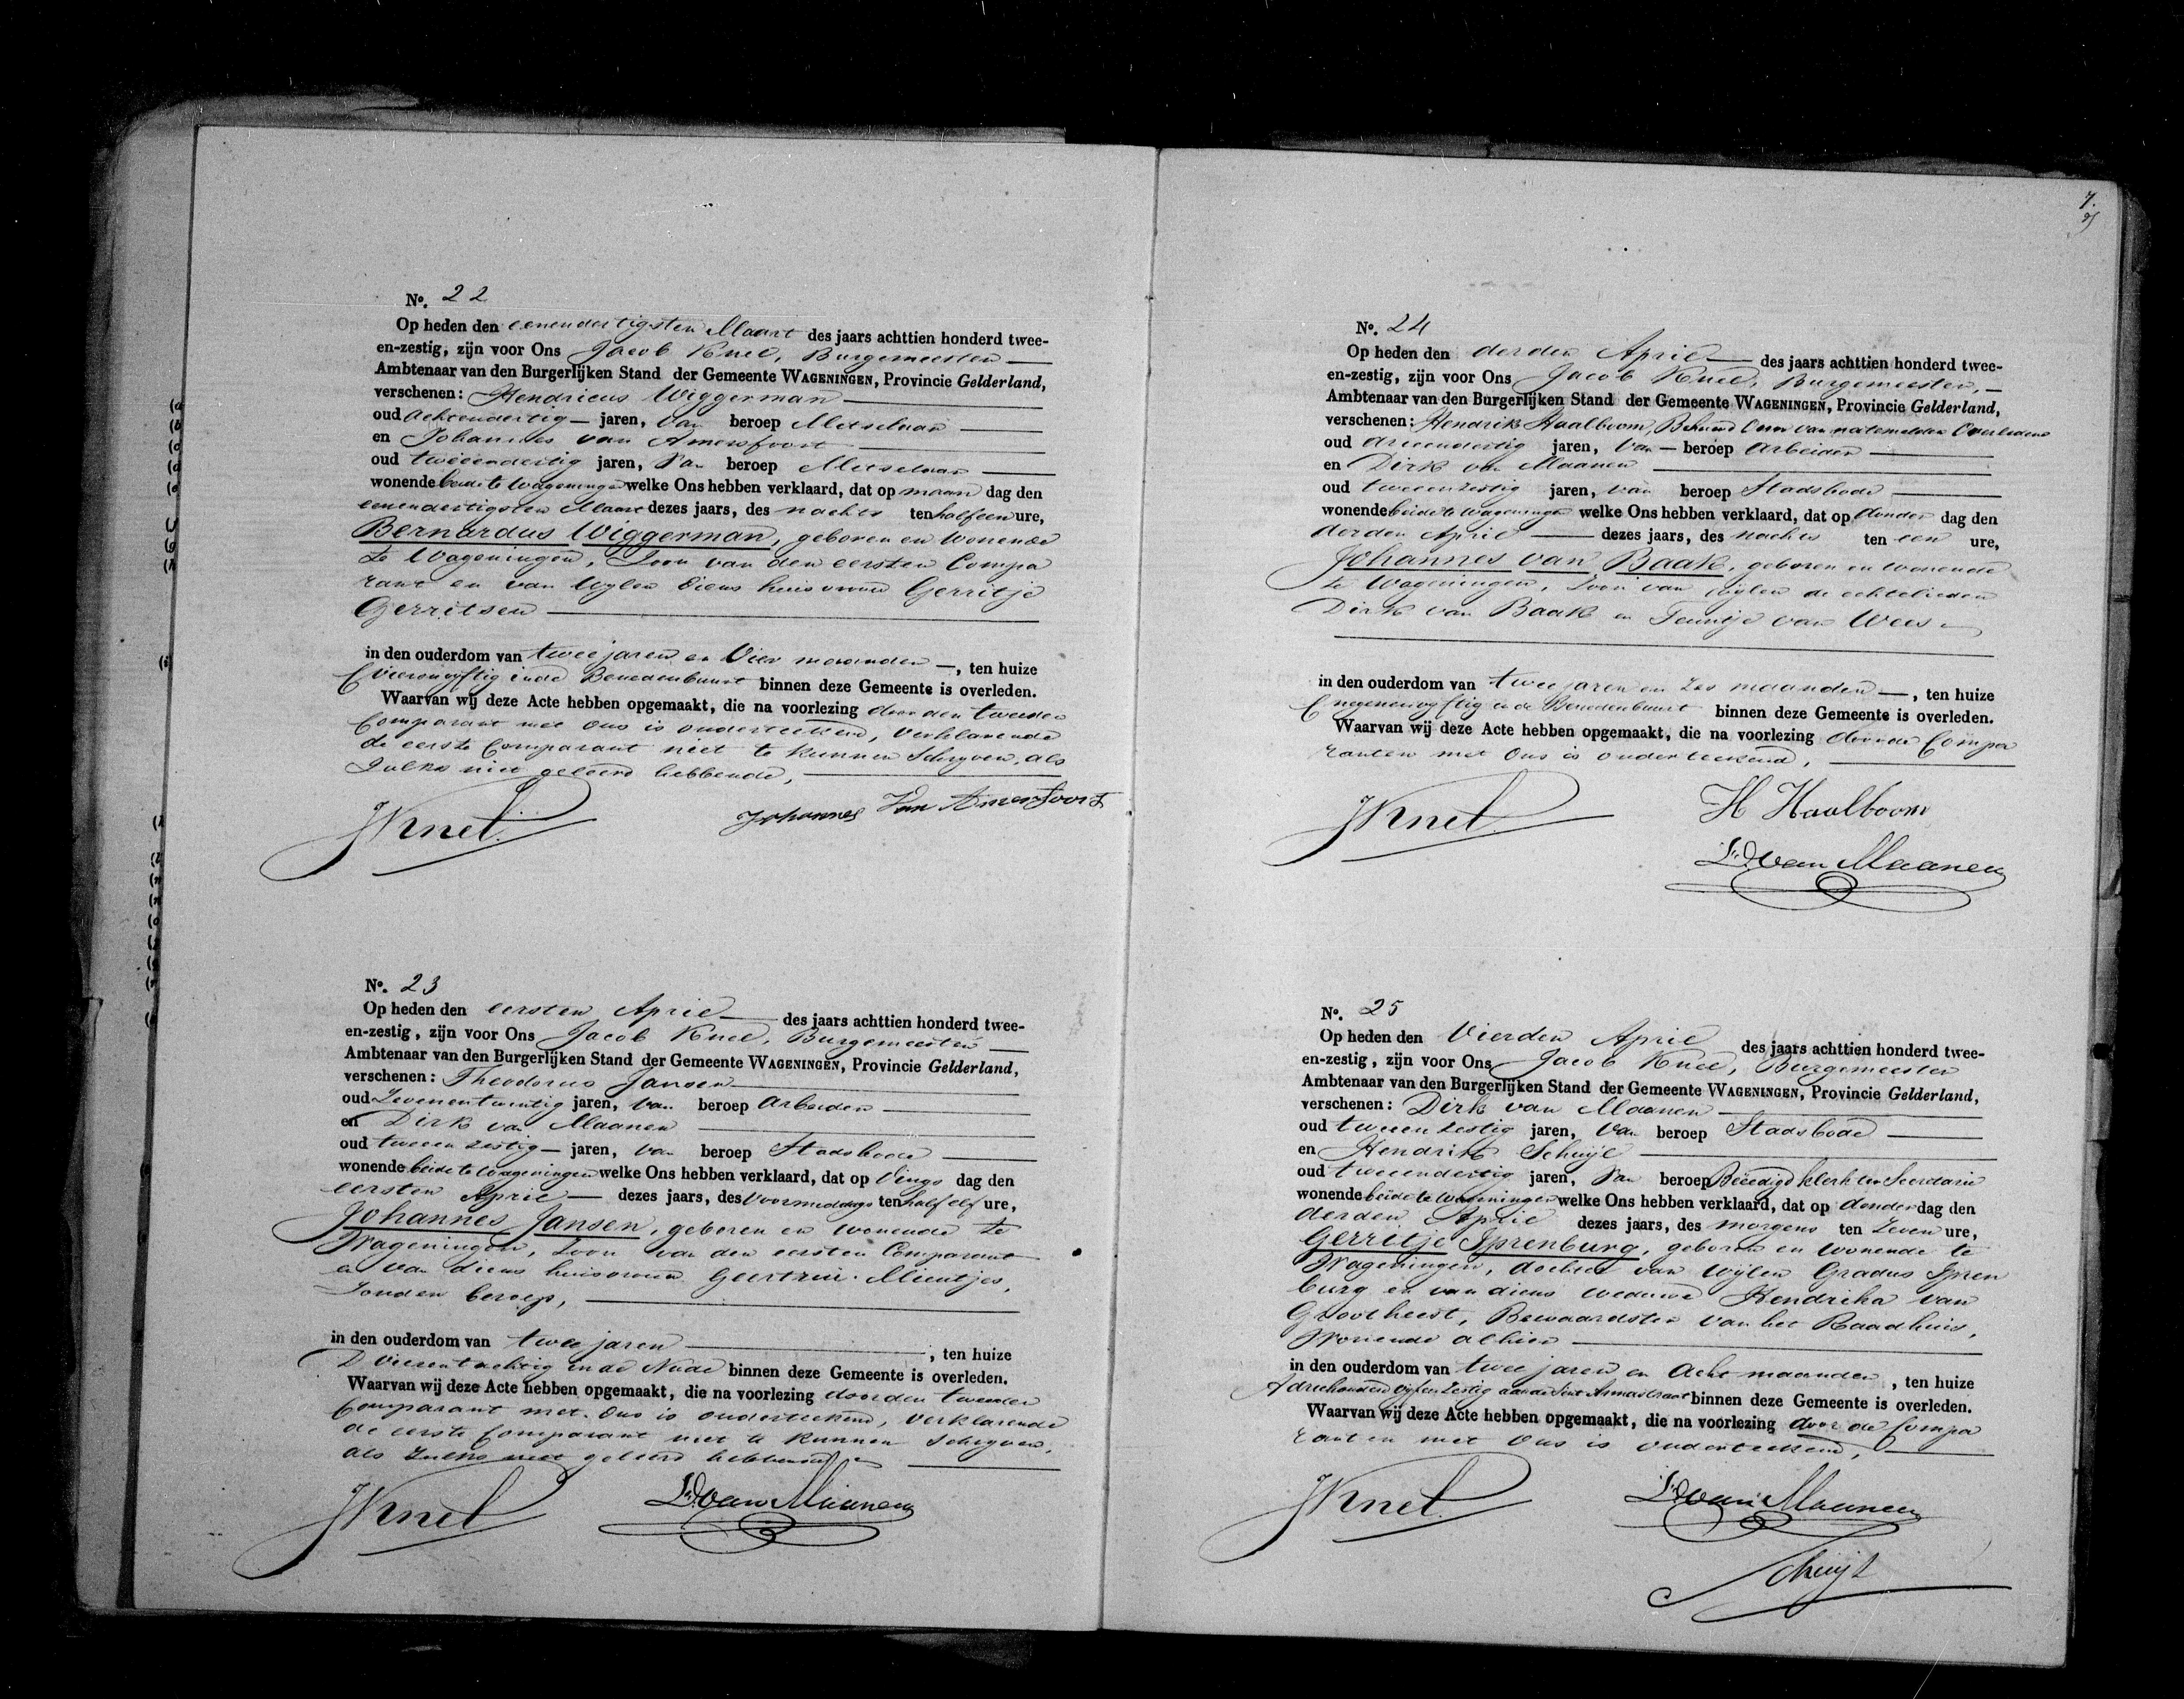 No. 22
Op heden den eenendertigsten Maart des jaars achttien honderd twee-
en-zestig, zijn voor Ons Jacob Knel, Burgemeester
Ambtenaar van den Burgerlijken Stand der Gemeente WAGENINGEN, Provincie Gelderland,
verschenen: Hendricus Wiggerman
oud achtendertig jaren, van beroep Metselaar
en Johannes van Amersfoort
oud tweeendertig jaren, van beroep Metselaar
wonende beide te Wageningen welke Ons hebben verklaard, dat op maan dag den
eenendertigsten Maart dezes jaars, des nachts ten half een ure,
Bernardus Wiggerman, geboren en wonende
te Wageningen, Zoon van den eersten Compa
rant en van wylen diens huisvrouw Gerritje
Gerritsen
in den ouderdom van twee jaren en Vier maanden, ten huize
C vierenvyftig in de Benedenbuurt binnen deze Gemeente is overleden.
Waarvan wij deze Acte hebben opgemaakt, die na voorlezing door den tweeden
Comparant met ons is onderteekend, verklarende
de eerste Comparant niet te kunnen Schryven, als
Zulks niet geleerd hebbende,
JKnel Johannes Van Amersfoort
No. 23
Op heden den eersten April des jaars achttien honderd twee-
en-zestig, zijn voor Ons Jacob Knel, Burgemeester
Ambtenaar van den Burgerlijken Stand der Gemeente WAGENINGEN, Provincie Gelderland,
verschenen: Theodorus Jansen
oud Zevenentwintig jaren, van beroep Arbeider
en Dirk van Maanen
oud tweeenzestig jaren, van beroep Stadsbode
wonende beide te Wageningen welke Ons hebben verklaard, dat op Dings dag den
eersten April dezes jaars, des Voormiddags ten half elf ure,
Johannes Jansen, geboren en wonende te
Wageningen, Zoon van den eersten Comparant
en van diens huisvrouw Geertrui Mientjes,
Zonder beroep,
in den ouderdom van twee jaren, ten huize
D vierentachtig in de Nude binnen deze Gemeente is overleden.
Waarvan wij deze Acte hebben opgemaakt, die na voorlezing door den tweeden
Comparant met Ons is onderteekend, verklarende
de eerste Comparant niet te kunnen Schryven,
als Zulks niet geleerd hebbende
JKnel D. van Maanen
7.
No. 24
Op heden den derden April des jaars achttien honderd twee-
en-zestig, zijn voor Ons Jacob Knel, Burgemeester,
Ambtenaar van den Burgerlijken Stand der Gemeente WAGENINGEN, Provincie Gelderland,
verschenen: Hendrik Haalboom, Behuwd Oom van natemelden Overledene
oud drieendertig jaren, van beroep Arbeider
en Dirk van Maanen
oud tweeenzestig jaren, van beroep Stadsbode
wonende beide te Wageningen welke Ons hebben verklaard, dat op donder dag den
derden April dezes jaars, des nachts ten een ure,
Johannes van Baak, geboren en wonende
te Wageningen, Zoon van wylen de echtelieden
Dirk van Baak en Teuntje van Wees
in den ouderdom van twee jaren en Zes maanden, ten huize
C negenenvyftig in de Benedenbuurt binnen deze Gemeente is overleden.
Waarvan wij deze Acte hebben opgemaakt, die na voorlezing door de Compa
ranten met Ons is onderteekend,
JKnel H Haalboom
D. van Maanen
No. 25
Op heden den Vierden April des jaars achttien honderd twee-
en-zestig, zijn voor Ons Jacob Knel, Burgemeester
Ambtenaar van den Burgerlijken Stand der Gemeente WAGENINGEN, Provincie Gelderland,
verschenen: Dirk van Maanen
oud tweeenzestig jaren, van beroep Stadsbode
en Hendrik Schuijl
oud tweeendertig jaren, van beroep Beëedigd klerk ter Secretarie
wonende beide te Wageningen welke Ons hebben verklaard, dat op donder dag den
derden April dezes jaars, des morgens ten Zeven ure,
Gerritje Sprenburg, geboren en wonende te
Wageningen, dochter van wylen Gradus Spren
burg en van diens weduwe Hendrika van
Grootheest, Bewaardster van het Raadhuis,
Wonende alhier
in den ouderdom van twee jaren en Acht maanden, ten huize
A driehonderd vyfenzestig aan de Sint Annastraat binnen deze Gemeente is overleden.
Waarvan wij deze Acte hebben opgemaakt, die na voorlezing door de Compa
ranten met Ons is onderteekend,
JKnel D. van Maanen
Schuijl